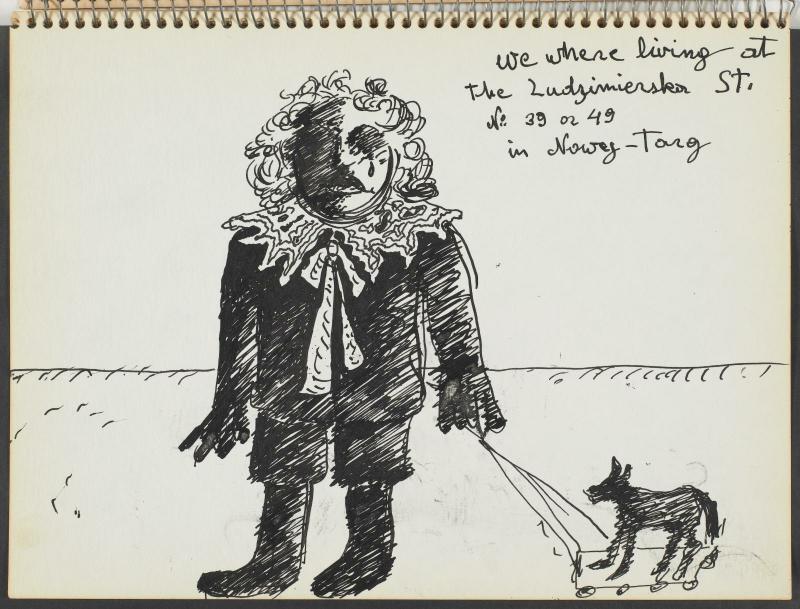 we where living at
the Ludzimierska St.
№ 39 or 49
in Nowy-Targ